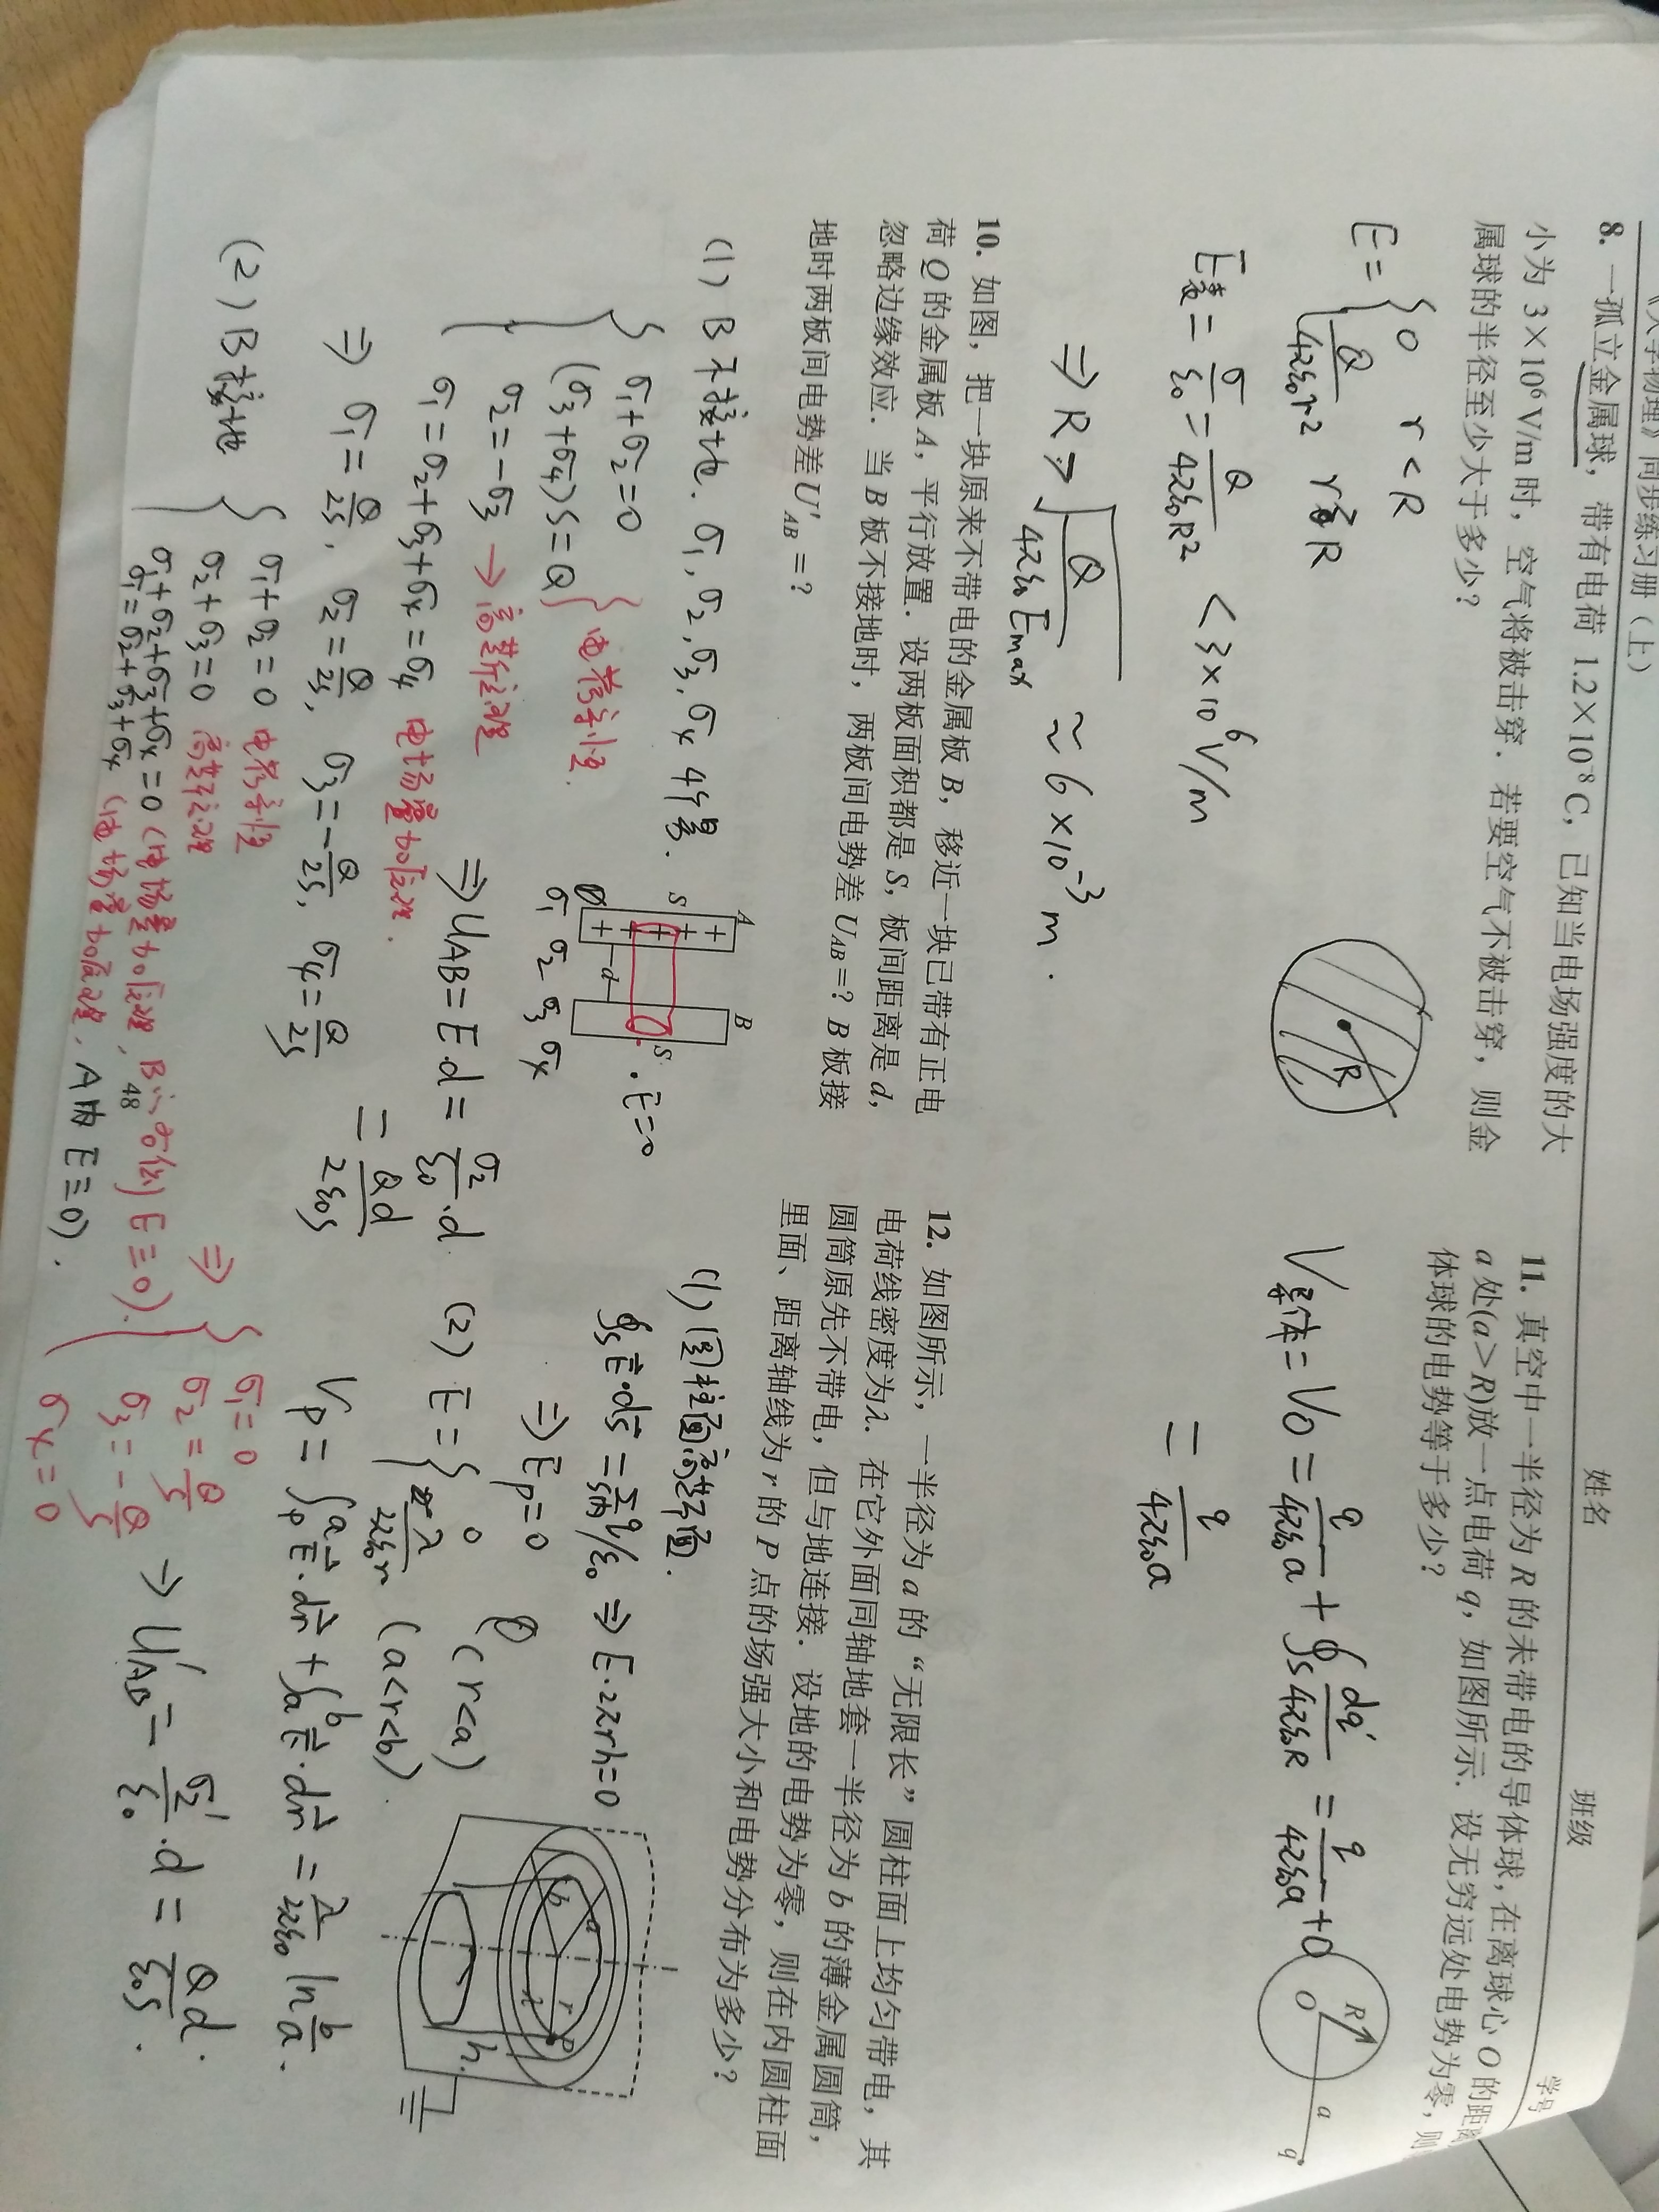 《大学物理》同步练习册（上）
姓名
班级
学号
8. 一孤立金属球，带有电荷 1.2×10⁻⁸C，已知当电场强度的大
小为 3×10⁶V/m 时，空气将被击穿．若要空气不被击穿，则金
属球的半径至少大于多少？
E = { 0 r < R
Q/4πε₀r² r≥R
R
E表 = σ/ε₀ = Q/4πε₀R² < 3×10⁶V/m
⇒ R > √(Q/4πε₀Emax) ≈ 6×10⁻³m.
10. 如图，把一块原来不带电的金属板 B，移近一块已带有正电
荷 Q 的金属板 A，平行放置．设两板面积都是 S，板间距离是 d，
忽略边缘效应．当 B 板不接地时，两板间电势差 U_AB=？B 板接
地时两板间电势差 U'_AB=？
A
B
S
S
d
.E=0
σ1 σ2 σ3 σ4
(1) B不接地. σ1, σ2, σ3, σ4 4个量.
σ1+σ2=0
(σ3+σ4)S=Q } 电荷守恒.
σ2=-σ3 → 高斯定理
σ1=σ2+σ3+σ4 电场叠加原理.
⇒ U_AB = E.d = σ2/ε₀ .d
= Qd/2ε₀S
⇒ σ1=Q/2S, σ2=Q/2S, σ3=-Q/2S, σ4=Q/2S
(2) B接地
σ1+σ2=0 电荷守恒
σ2+σ3=0 高斯定理
σ1+σ2+σ3+σ4=0 (电场叠加原理, B E≡0).
σ1=σ2+σ3+σ4 (电场叠加原理, A内 E≡0).
⇒ { σ1=0
σ2=Q/S
σ3=-Q/S
σ4=0
→ U'_AB = σ2'/ε₀ .d = Qd/ε₀S.
48
11. 真空中一半径为 R 的未带电的导体球，在离球心 O 的距离
a 处(a>R)放一点电荷 q，如图所示．设无穷远处电势为零，则
体球的电势等于多少？
V导体 = V₀ = q/4πε₀a + ∮s dq'/4πε₀R = q/4πε₀a + 0
= q/4πε₀a
R
O
a
q
12. 如图所示，一半径为 a 的“无限长”圆柱面上均匀带电，其
电荷线密度为 λ．在它外面同轴地套一半径为 b 的薄金属圆筒，
圆筒原先不带电，但与地连接．设地的电势为零，则在内圆柱面
里面、距离轴线为 r 的 P 点的场强大小和电势分布为多少？
(1) 圆柱面高斯面.
∮s E⃗·dS⃗ = Σq内/ε₀ ⇒ E·2πrh=0
⇒ E_p=0
(2) E = { 0 (r<a)
λ/2πε₀r (a<r<b).
V_p = ∫_p^a E⃗·dr⃗ + ∫_a^b E⃗·dr⃗ = λ/2πε₀ ln b/a.
b
a
r
P
λ
h.